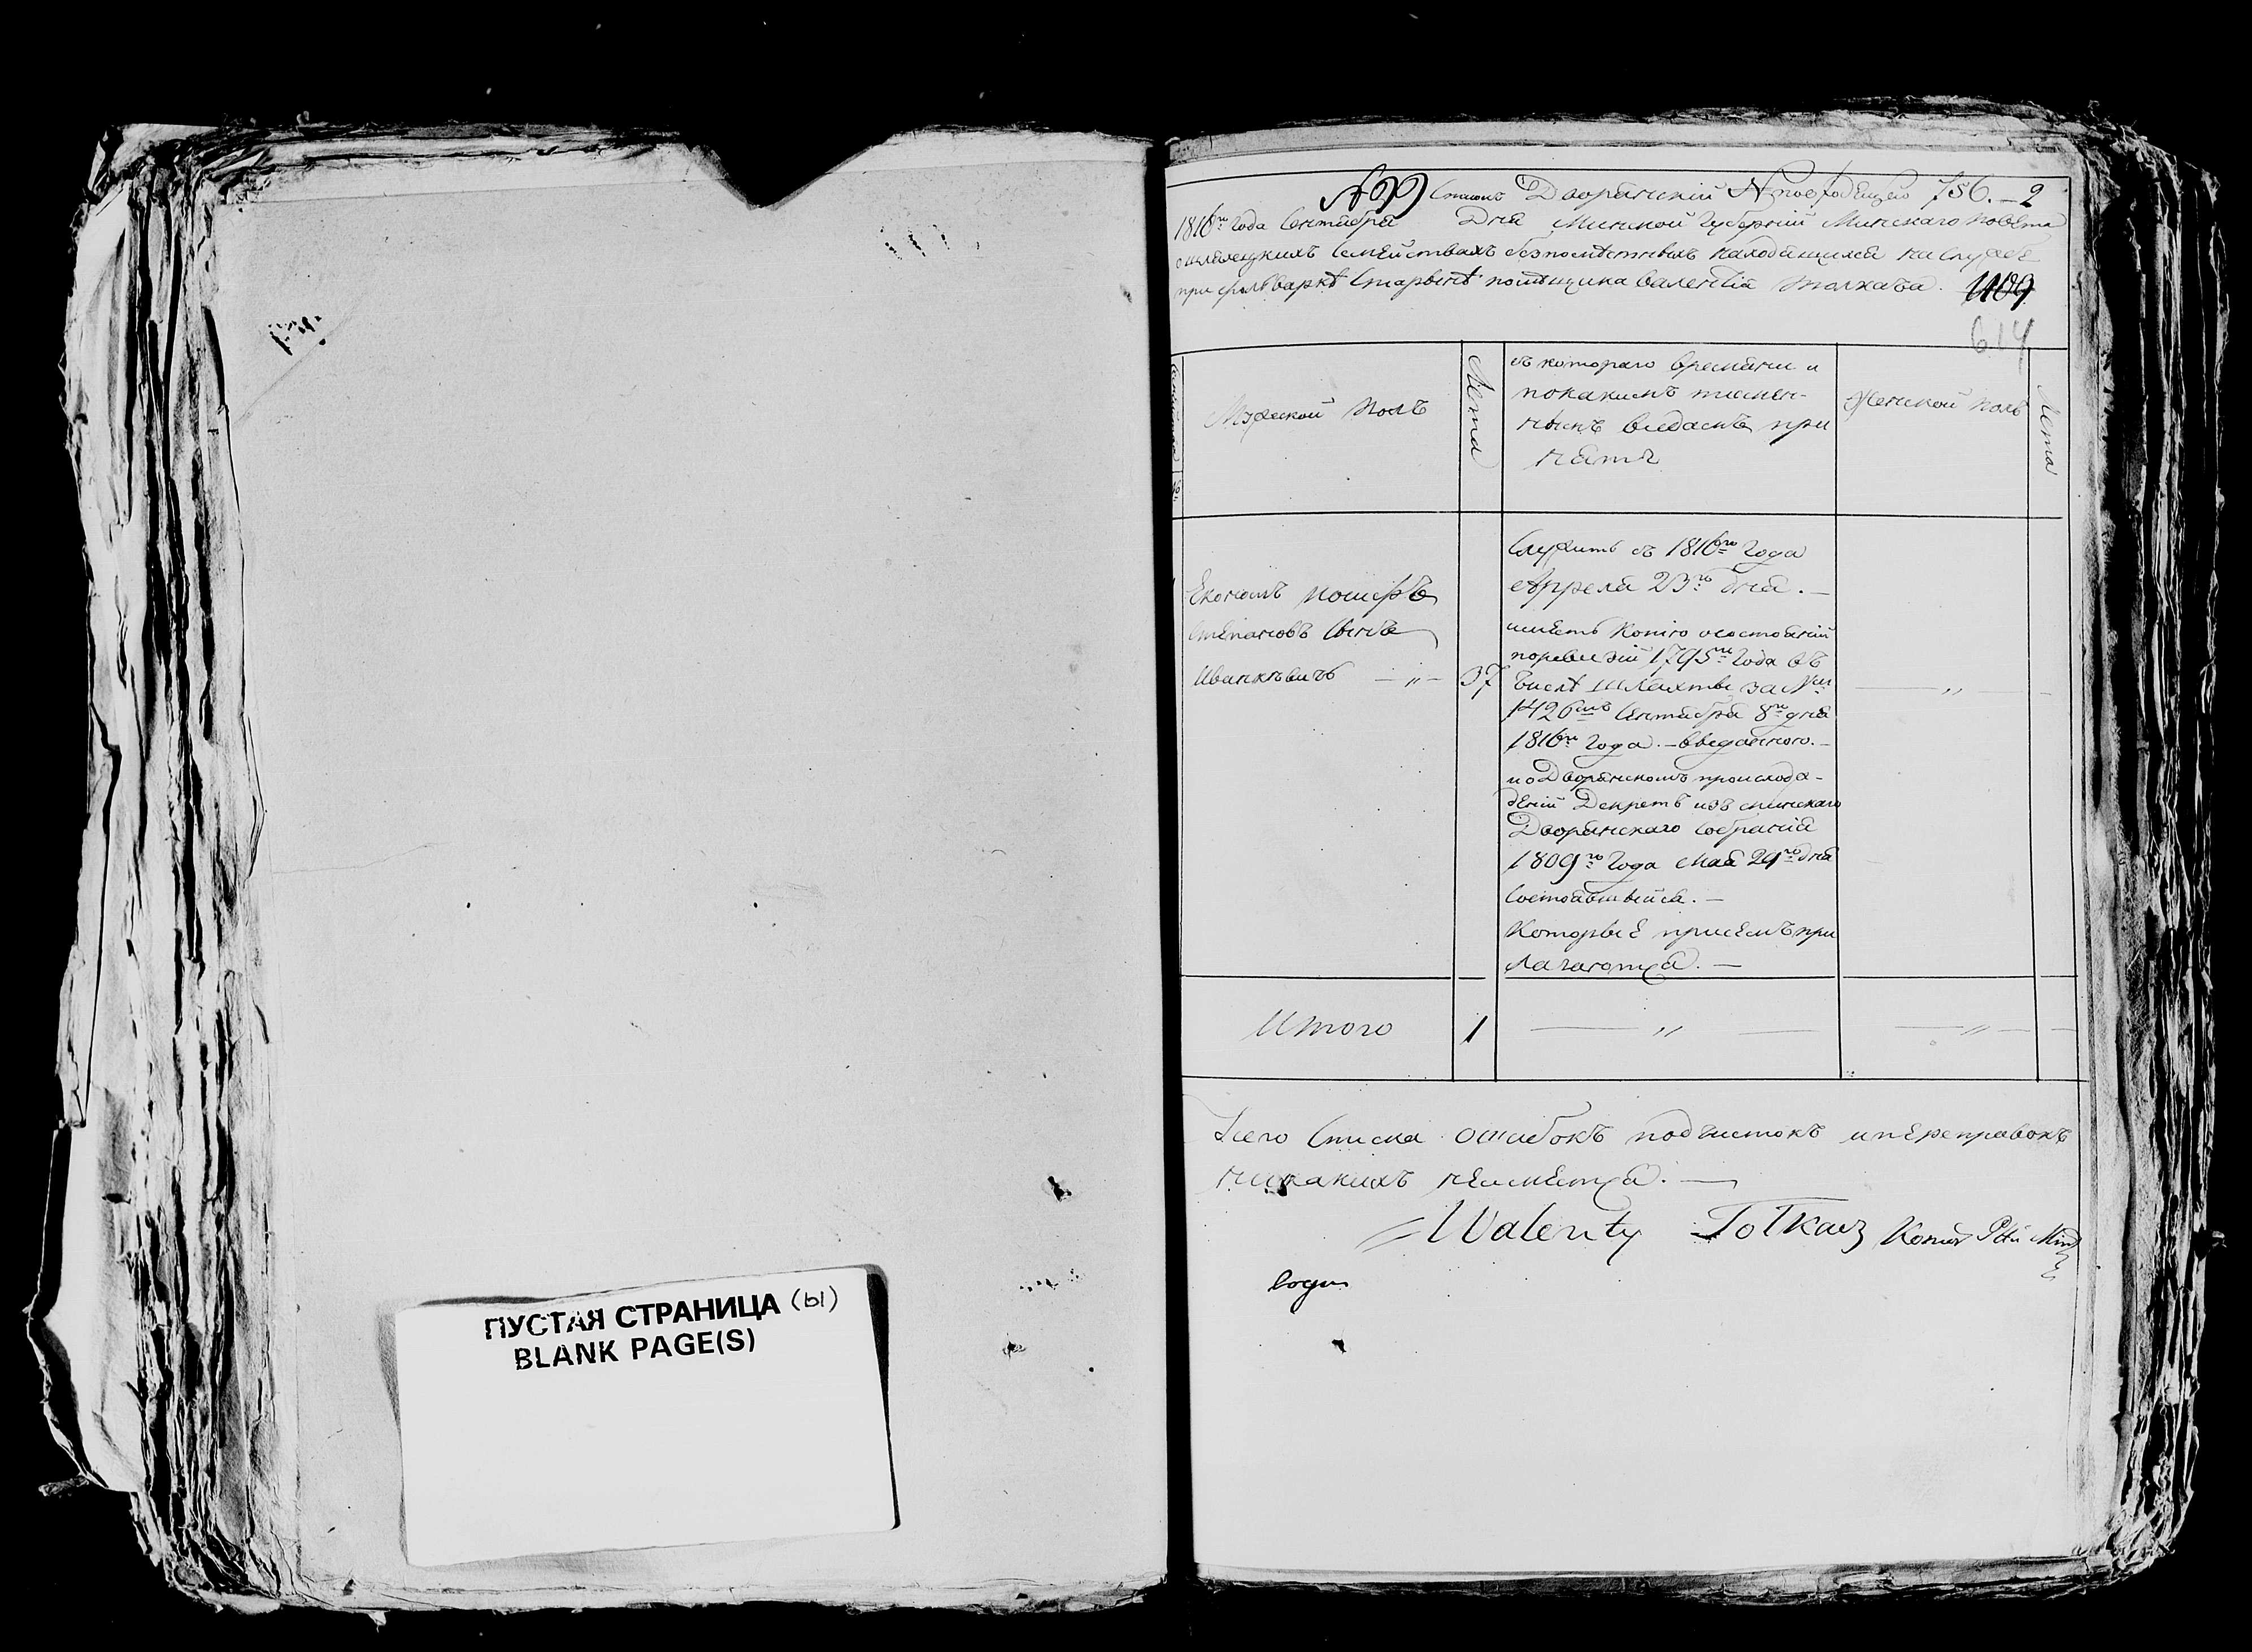 ПУСТАЯ СТРАНИЦА (ы)
BLANK PAGE(S)
Списокъ Дворянскій 756. — 2
1816го года Сентября Дня Минской Губерніи Минскаго повѣта
о шляхецкихъ Семействахъ безпомѣстныхъ находящихся на службѣ
при фольваркѣ помѣщика Валентія Толкача. 1109
614
Мужеской полъ
Лета
съ котораго времяни и
по какимъ писмен-
нымъ видамъ при
няты
Женской полъ
Лета
Економъ
Степановъ Сынъ
— „ — 37
Служитъ съ 1816го года
Апреля 23го дня. —
имѣетъ копію о состояніи
по ревизіи 1795го года въ
числѣ Шляхты за №м
1426мъ Сентября 8го дня
1816го года. —
и о Дворянскомъ происхож-
деніи Декретъ изъ минскаго
Дворянскаго Собранія
1809го года мая 29го дня
состоявшийся. —
Которые при семъ при
лагаются. —
— „ —
Итого
1
— „ —
— „ —
Сего Списка ошибокъ подчистокъ и переправокъ
никакихъ неимѣется. —
Walenty Tołkacz